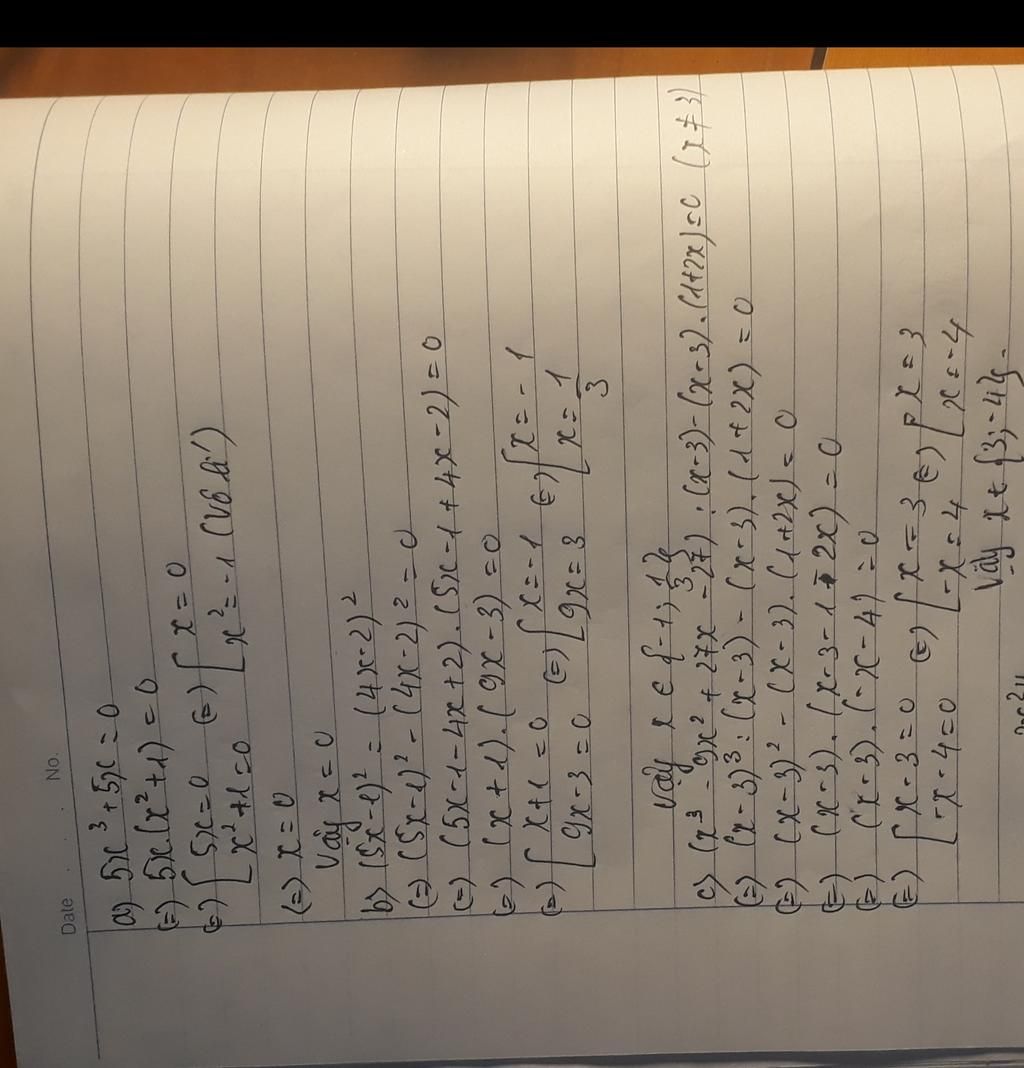 Date . . No.
a) 5x³ + 5x = 0
(=) 5x(x²+1) = 0
(=) [ 5x = 0 (=) [ x = 0
x²+1 = 0 x² = -1 (Vô lí)
(=) x = 0
Vậy x = 0
b) (5x-1)² = (4x-2)²
(=) (5x-1)² - (4x-2)² = 0
(=) (5x-1-4x+2).(5x-1+4x-2) = 0
(=) (x+1).(9x-3) = 0
(=) [ x+1 = 0 (=) [ x = -1 (=) [ x = -1
9x-3 = 0 9x = 3 x = 1/3
Vậy x ∈ {-1; 1/3}
c) (x³ - 9x² + 27x - 27) : (x-3) - (x-3).(1+2x) = 0 (x ≠ 3)
(=) (x-3)³ : (x-3) - (x-3).(1+2x) = 0
(=) (x-3)² - (x-3).(1+2x) = 0
(=) (x-3).(x-3-1-2x) = 0
(=) (x-3).(-x-4) = 0
(=) [ x-3 = 0 (=) [ x = 3 (=) [ x = 3
-x-4 = 0 -x = 4 x = -4
Vậy x ∈ {3; -4}.